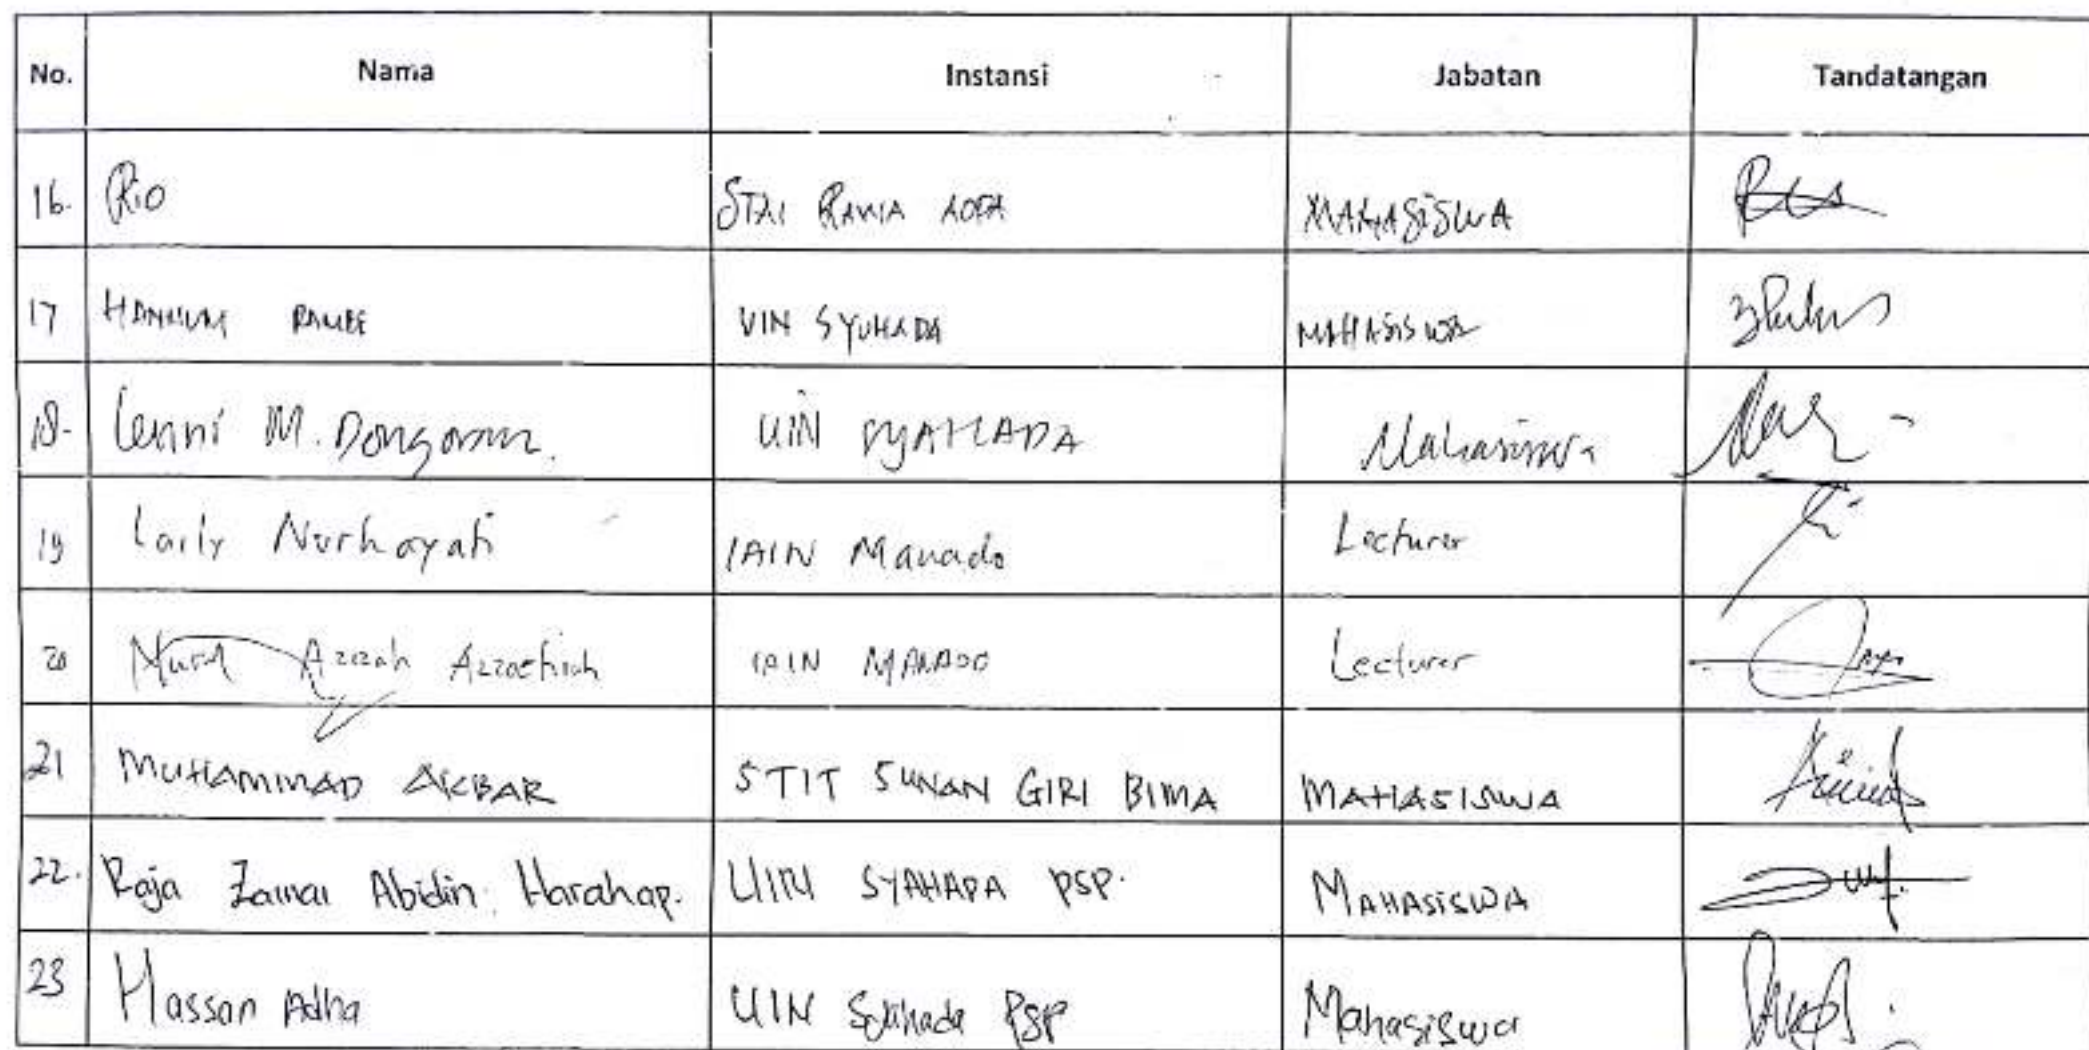 No. Nama Instansi Jabatan Tandatangan
16. Rio STAI MAHASISWA
17 HANNUM RAMBE UIN SYUHADA MAHASISWA
18. Lenni M. Dongoran. UIN SYAHADA Mahasiswa
19 Laily Nurhayati IAIN Manado Lecturer
20 Nurul Azizah Azzochrah IAIN MANADO Lecturer
21 MUHAMMAD AKBAR STIT SUNAN GIRI BIMA MAHASISWA
22. Raja Zainal Abidin Harahap. UIN SYAHADA PSP. MAHASISWA
23 Hassan Adha UIN Syahada PSP Mahasiswa